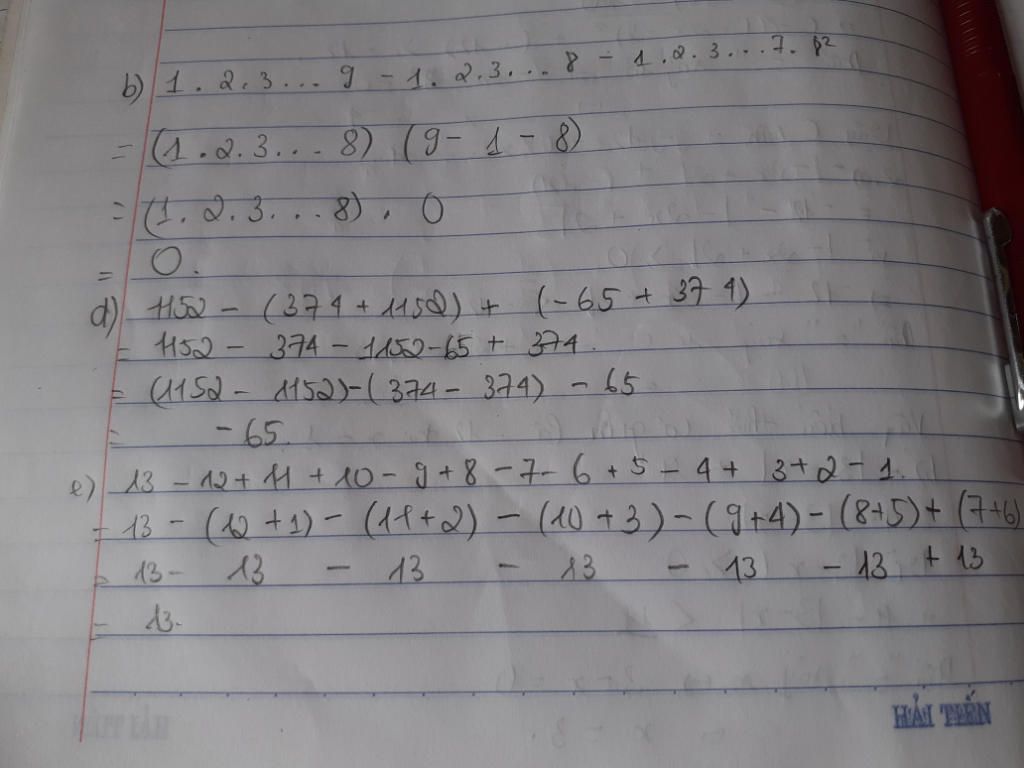 b) 1 . 2 . 3 . . . 9 - 1 . 2 . 3 . . . 8 - 1 . 2 . 3 . . . 7 . 8²
= (1 . 2 . 3 . . . 8) (9 - 1 - 8)
= (1 . 2 . 3 . . . 8) . 0
= 0 .
d) 1152 - (374 + 1152) + (- 65 + 374)
= 1152 - 374 - 1152 - 65 + 374 .
= (1152 - 1152) - (374 - 374) - 65
= - 65 .
e) 13 - 12 + 11 + 10 - 9 + 8 - 7 - 6 + 5 - 4 + 3 + 2 - 1 .
= 13 - (12 + 1) - (11 + 2) - (10 + 3) - (9 + 4) - (8 + 5) + (7 + 6)
= 13 - 13 - 13 - 13 - 13 - 13 + 13
= 13 .
HẢI TIẾN